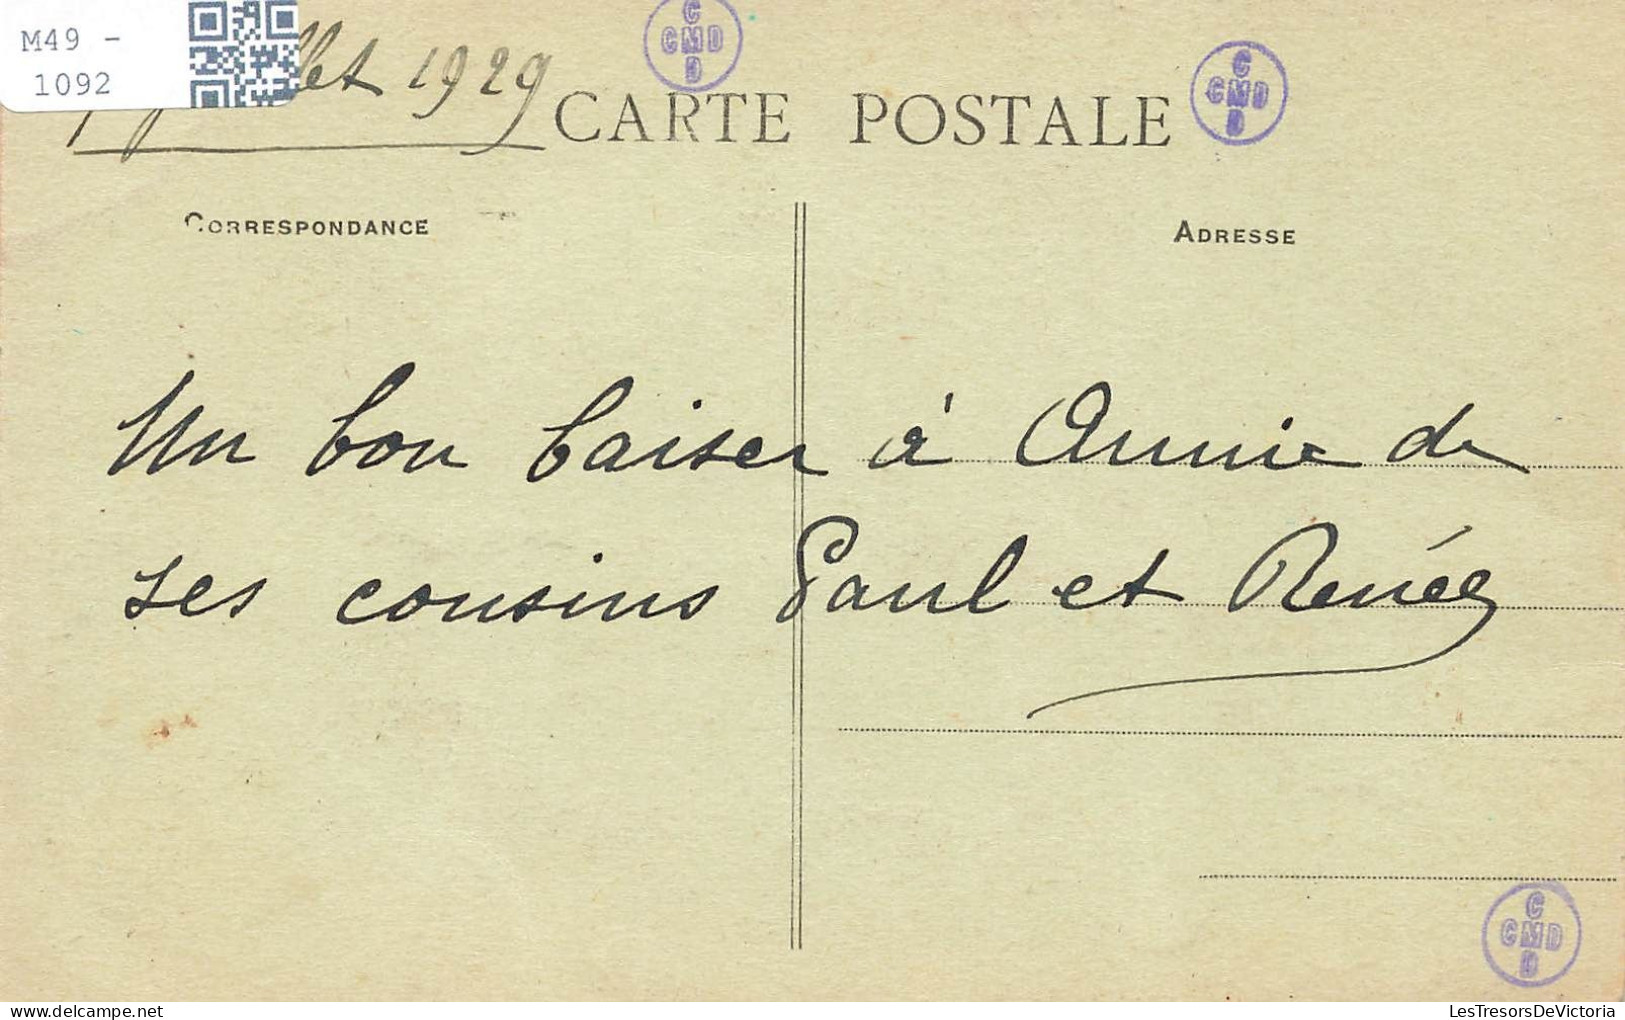 M49 -
1092
1929
CARTE POSTALE
CMD
CMD
CORRESPONDANCE
ADRESSE
Un bon baiser à Annie de
ses cousins Paul et Renée
CMD
LesTresorsDeVictoria